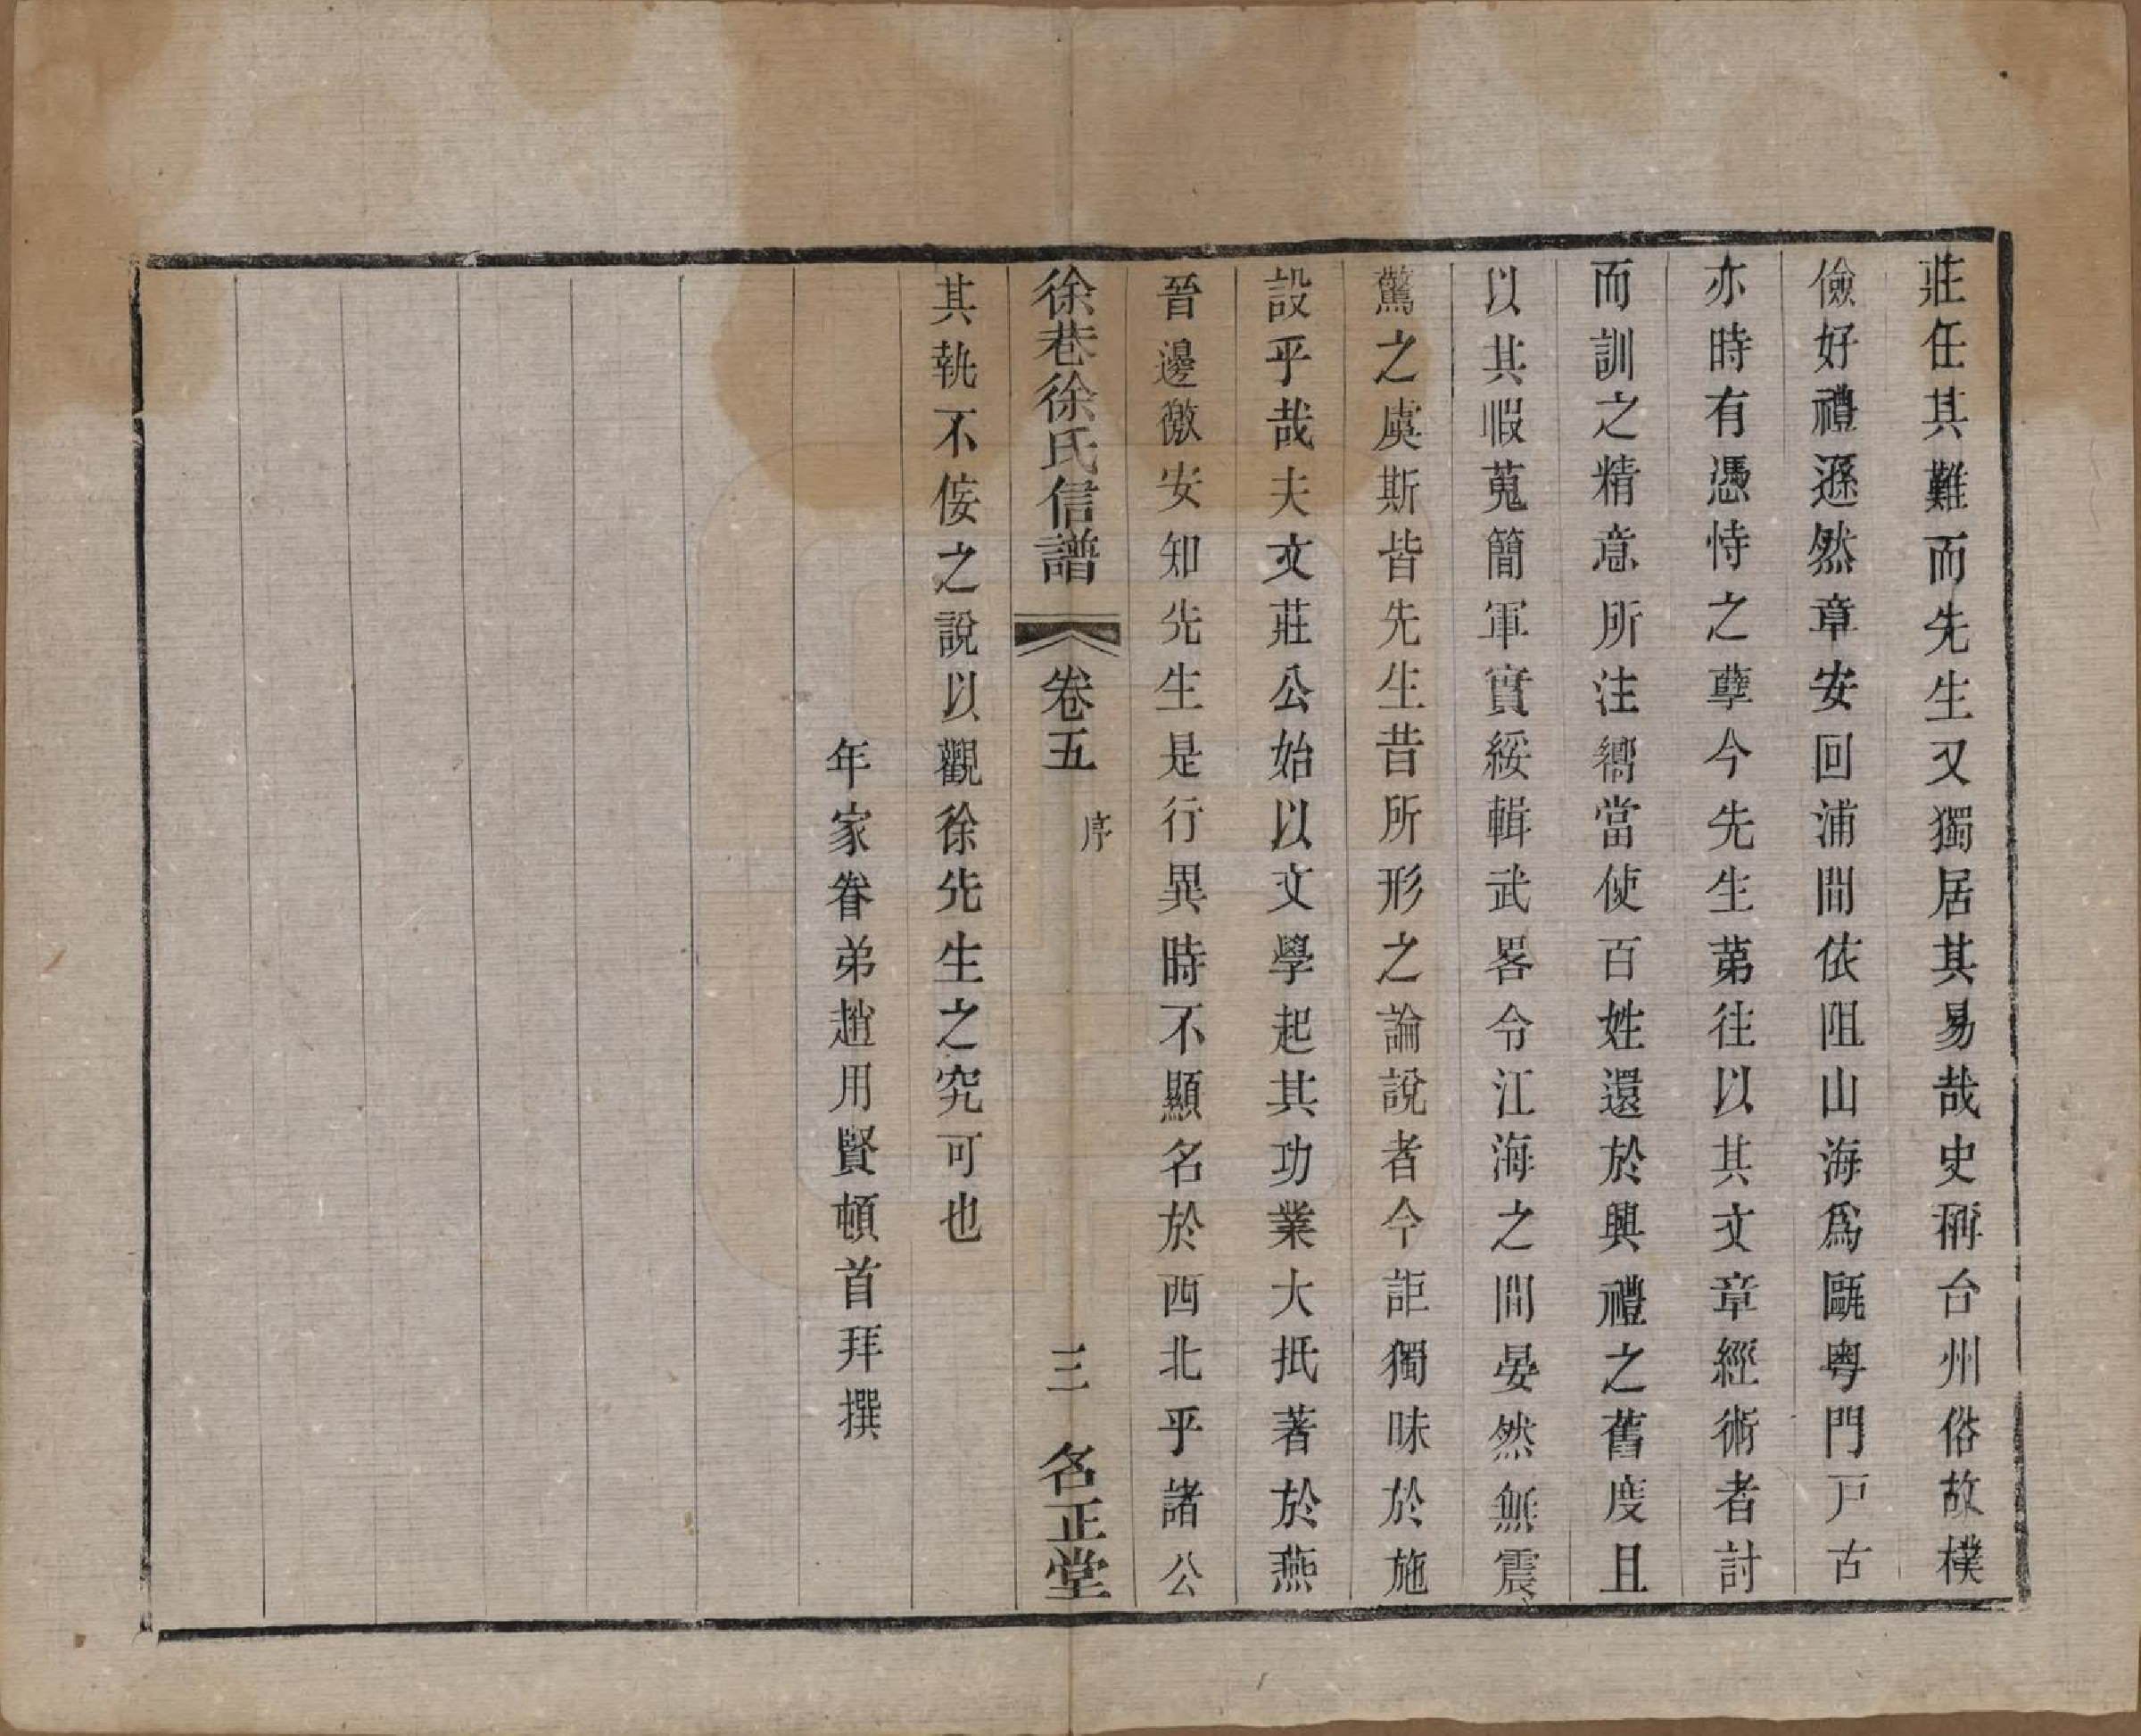 莊任其難而先生又獨居其易哉史稱台州俗故樸
儉好禮遜然章安回浦間依阻山海爲甌粵門戸古
亦時有憑恃之孽今先生苐往以其文章經術者討
而訓之精意所注嚮當使百姓還於興禮之舊度且
以其暇蒐簡軍實綏輯武畧令江海之間晏然無震
驚之虞斯皆先生昔所形之論說者今詎獨昧於施
設乎哉夫文莊公始以文學起其功業大抵著於燕
晉邊徼安知先生是行異時不顯名於西北乎諸公
徐巷徐氏信譜 卷五 序 三 名正堂
其執不佞之說以觀徐先生之究可也
年家眷弟趙用賢頓首拜撰